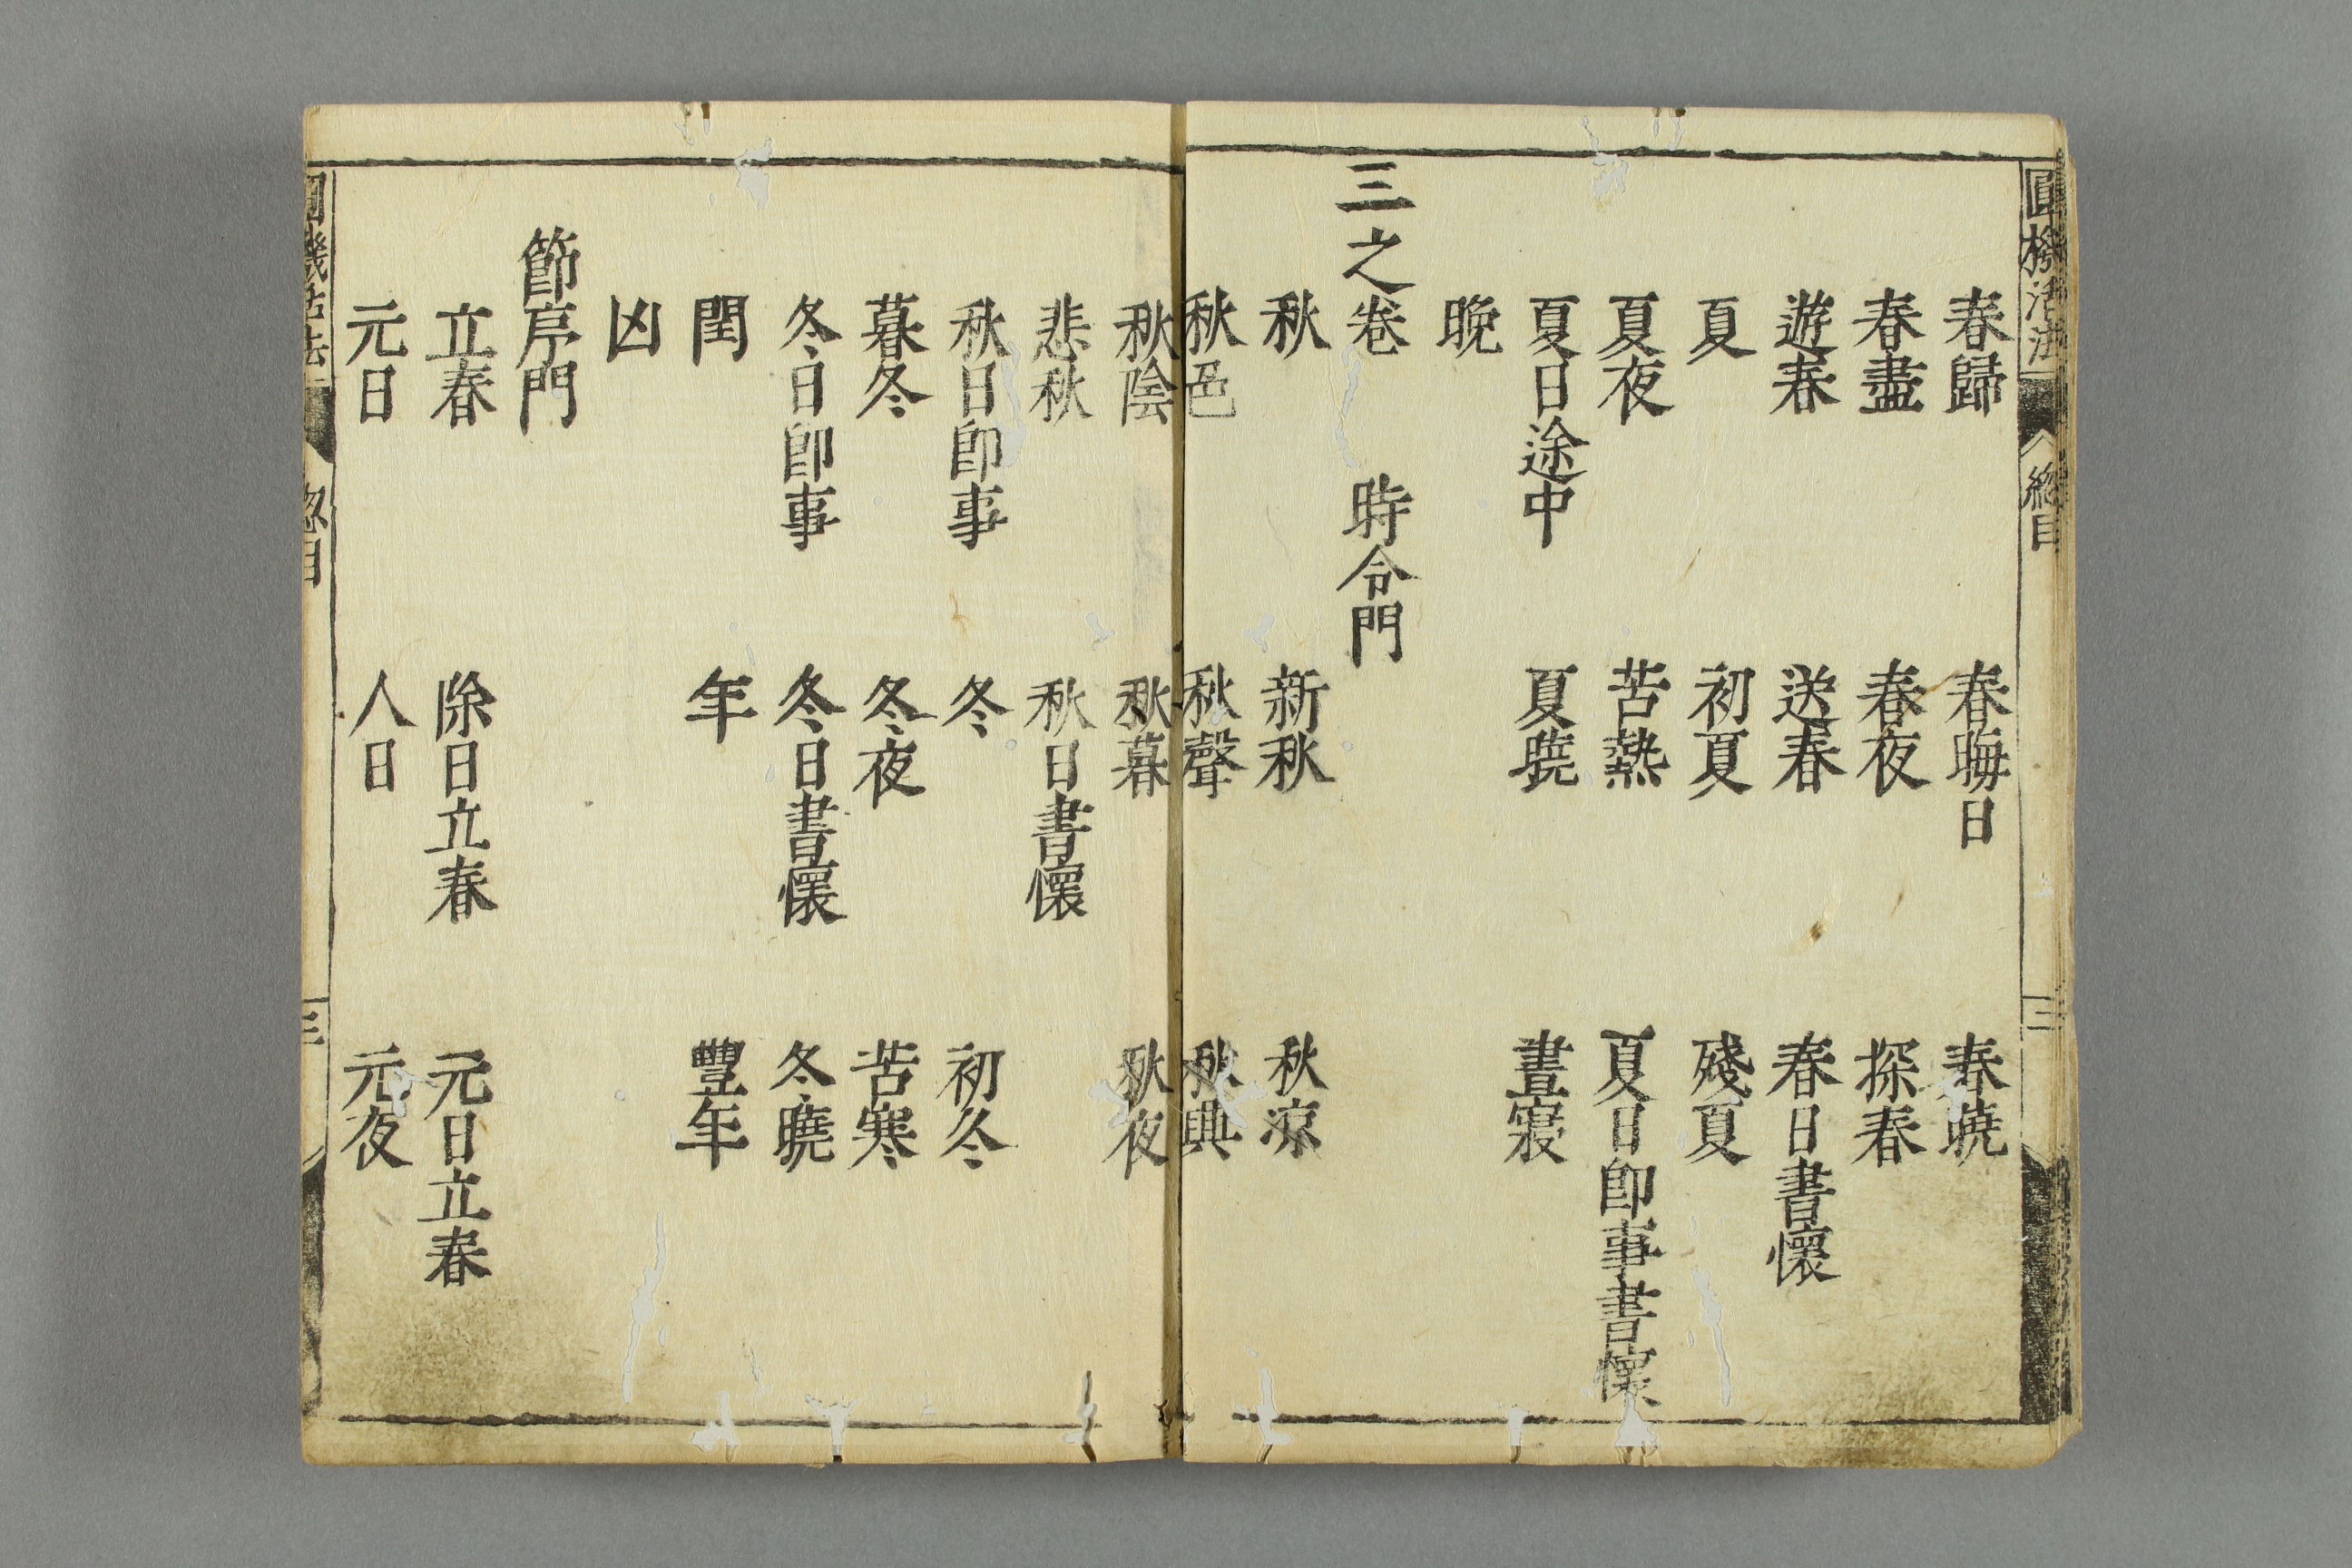 圓機活法 總目 三
春歸 春晦日 春曉
春盡 春夜 探春
遊春 送春 春日書懷
夏 初夏 殘夏
夏夜 苦熱 夏日卽事書懷
夏日途中 夏曉 晝寢
晩
三之卷 時令門
秋 新秋 秋凉
秋色 秋聲 秋興
秋陰 秋暮 秋夜
悲秋 秋日書懷
秋日卽事 冬 初冬
暮冬 冬夜 苦寒
冬日卽事 冬日書懷 冬曉
閏 年 豐年
凶
節序門
立春 除日立春 元日立春
元日 人日 元夜
圓機活法 總目 三